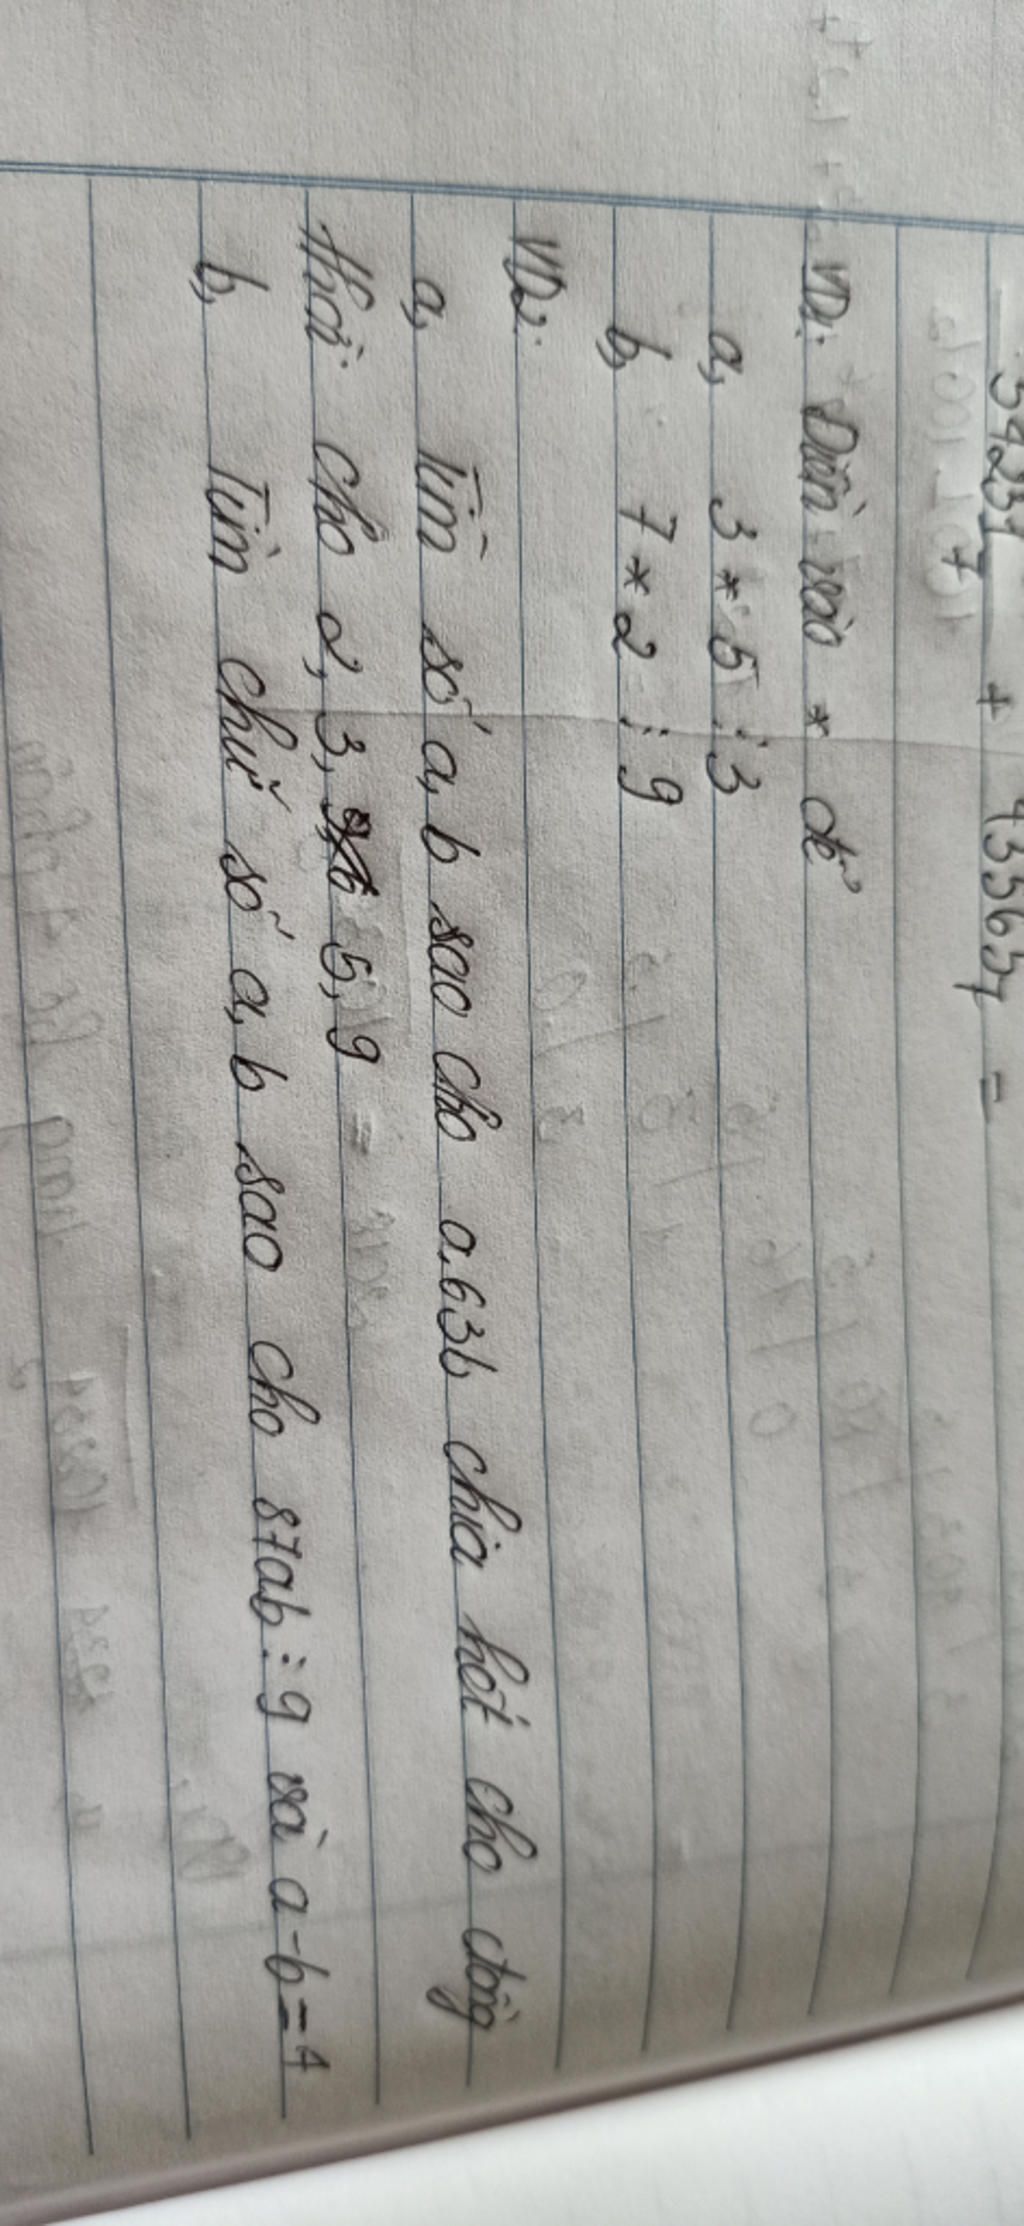 54231 + 43567 =
VD1: Điền vào * để
a, 3 * 5 ⋮ 3
b, 7 * 2 ⋮ 9
VD2:
a, Tìm số a, b sao cho a63b chia hết cho đồng
thời cho 2, 3, 5, 9
b, Tìm chữ số a, b sao cho 87ab ⋮ 9 và a-b=4